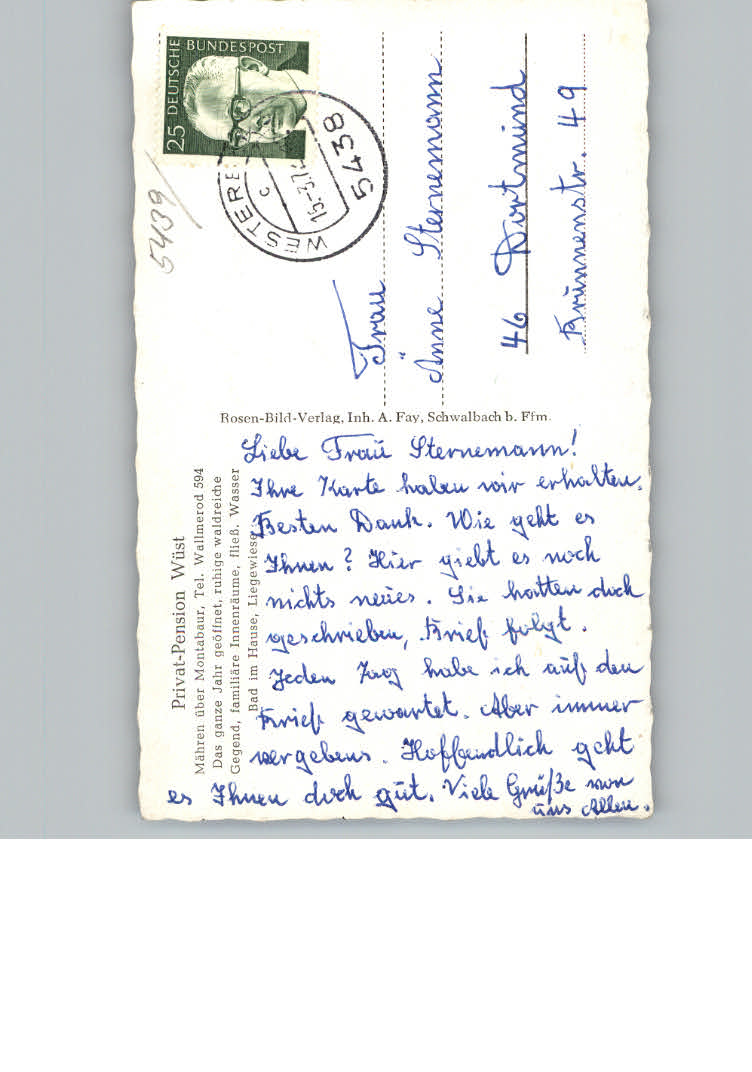 Privat-Pension Wüst
Mähren über Montabaur, Tel. Wallmerod 594
Das ganze Jahr geöffnet, ruhige waldreiche
Gegend, familiäre Innenräume, fließ. Wasser
Bad im Hause, Liegewiese
Liebe Frau Sternemann!
Ihre Karte haben wir erhalten.
Besten Dank. Wie geht es
Ihnen? Hier giebt es noch
nichts neues. Sie hatten doch
geschrieben, Brief folgt.
Jeden Tag habe ich auf den
Brief gewartet. Aber immer
vergebens. Hoffendlich geht
es Ihnen doch gut. Viele Grüße von
uns Allen.
Rosen-Bild-Verlag, Inh. A. Fay, Schwalbach b. Ffm.
25 DEUTSCHE BUNDESPOST
5438
WESTERB
c
15.-3.7
5439
Frau
Änne Sternemann
46 Dortmund
Brünnenstr. 49